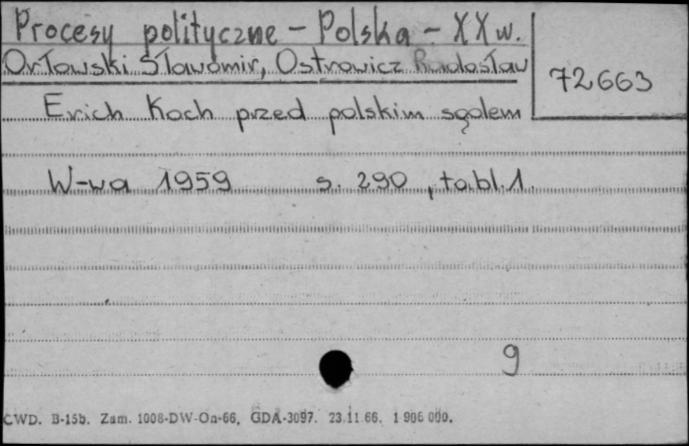 Procesy polityczne - Polska - XX w.
Orłowski Sławomir, Ostrowicz Radosław
72663
Erich Koch przed polskim sądem
W-wa 1959 s. 290, tabl. 1.
9
CWD. B-15b. Zam. 1008-DW-Oa-66, GDA-3097. 23.11.66. 1 906 000.